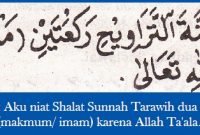 نَّةَ التَّرَاوِيحِ رَكْعَتَيْنِ (مَأْ
لِلّٰهِ تَعَالَى.
Aku niat Shalat Sunnah Tarawih dua
(makmum/ imam) karena Allah Ta'ala.